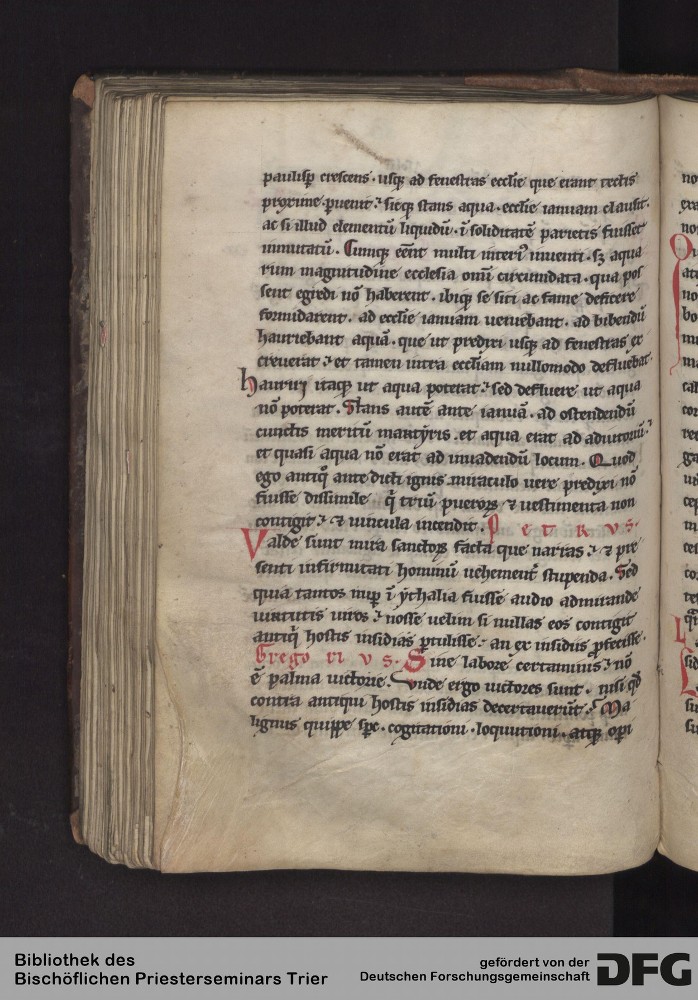 paulisꝑ crescens · usqꝫ ad fenestras eccl̄ie que erant tectis
proxime ꝑuenit · sicqꝫ stans aqua · eccl̄ie ianuam clausit ·
ac si illud elementū liquidū · ī soliditatē parietis fuisset
inmutatū · Cumqꝫ eēnt multi interiꝰ inuenti · sꝫ aqua
rum magnitudine ecclesia om̄i circumdata · qua pos
sent egredi nō haberent · ibiqꝫ se siti ac fame deficere
formidarent · ad eccl̄ie ianuam ueniebant · ad bibendū
hauriebant aquā · que ut predixi usqꝫ ad fenestras ex
creuerat · et tamen intra eccl̄iam nullomodo defluebat ·
hauriri itaqꝫ ut aqua poterat · sed defluere ut aqua
nō poterat · Stans autē ante ianuā · ad ostendendū
cunctis meritū martẏris · et aqua erat ad adiutoriū ·
et quasi aqua nō erat ad inuadendū locum · Quod
ego antiqͦ ante dicti ignis miraculo uere predixi nō
fuisse dissimile q̄ triū pueroꝝ ⁊ uestimenta non
contigit · ⁊ uincula incendit · Petrus ·
Valde sunt mira sanctoꝝ facta que narras · ⁊ pre
senti infirmitati hominū uehement̄ stupenda · Sed
quia tantos nuꝑ ī ẏthalia fuisse audio admirande
uirtutis uiros · nosse uelim si nullas eos contigit
antiq̄ hostis insidias ꝑtulisse · an ex insidiis ꝓfecisse ·
Gregorius · Sine labore certaminis · nō
ē palma uictorie · Vnde ergo uictores sunt · nisi qđ
contra antiqui hostis insidias decertauerūt · Ma
lignus quippe sp̄c · cogitationi · loquutioni · atqꝫ oꝑi
Bibliothek des
Bischöflichen Priesterseminars Trier
gefördert von der
Deutschen Forschungsgemeinschaft
DFG